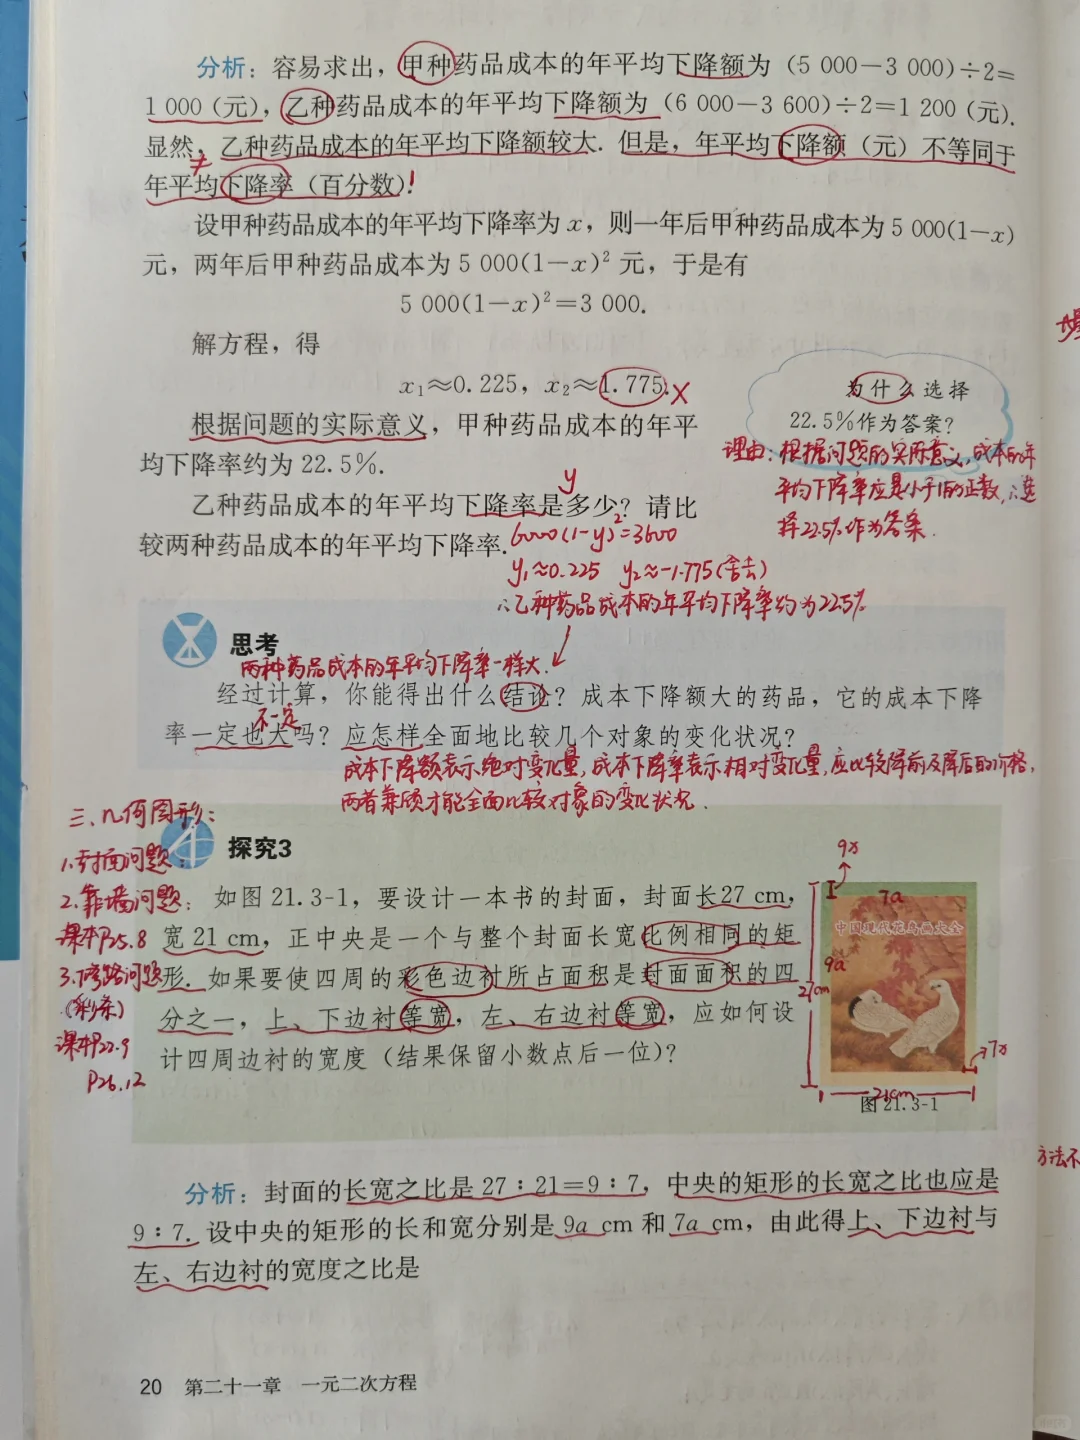 分析：容易求出，甲种药品成本的年平均下降额为（5 000－3 000）÷2＝
1 000（元），乙种药品成本的年平均下降额为（6 000－3 600）÷2＝1 200（元）.
显然，乙种药品成本的年平均下降额较大. 但是，年平均下降额（元）不等同于
≠
年平均下降率（百分数）!
设甲种药品成本的年平均下降率为 x，则一年后甲种药品成本为 5 000(1－x)
元，两年后甲种药品成本为 5 000(1－x)² 元，于是有
5 000(1－x)²＝3 000.
解方程，得
x₁≈0.225，x₂≈1.775. X
为什么选择
22.5%作为答案？
根据问题的实际意义，甲种药品成本的年平
均下降率约为 22.5%.
理由：根据问题的实际意义，成本的年
平均下降率应是小于1的正数，∴选
择22.5%作为答案.
y
乙种药品成本的年平均下降率是多少？请比
较两种药品成本的年平均下降率.
6000(1-y)²=3600
y₁≈0.225 y₂≈-1.775(舍去)
∴乙种药品成本的年平均下降率约为22.5%
思考
两种药品成本的年平均下降率一样大.
经过计算，你能得出什么结论？成本下降额大的药品，它的成本下降
不一定
率一定也大吗？应怎样全面地比较几个对象的变化状况？
成本下降额表示绝对变化量，成本下降率表示相对变化量，应比较降前及降后的价格，
两者兼顾才能全面比较对象的变化状况.
三、几何图形：
1.封面问题：
2.靠墙问题：
课本P25.8
3.修路问题
(彩条)
课本P22.9
P26.12
探究3
如图 21.3-1，要设计一本书的封面，封面长27 cm，
宽 21 cm，正中央是一个与整个封面长宽比例相同的矩
形. 如果要使四周的彩色边衬所占面积是封面面积的四
分之一，上、下边衬等宽，左、右边衬等宽，应如何设
计四周边衬的宽度（结果保留小数点后一位）？
9x
7a
中国现代花鸟画大全
9a
27cm
7x
21cm
图 21.3-1
方法不
分析：封面的长宽之比是 27∶21＝9∶7，中央的矩形的长宽之比也应是
9∶7. 设中央的矩形的长和宽分别是 9a cm 和 7a cm，由此得上、下边衬与
左、右边衬的宽度之比是
20 第二十一章 一元二次方程